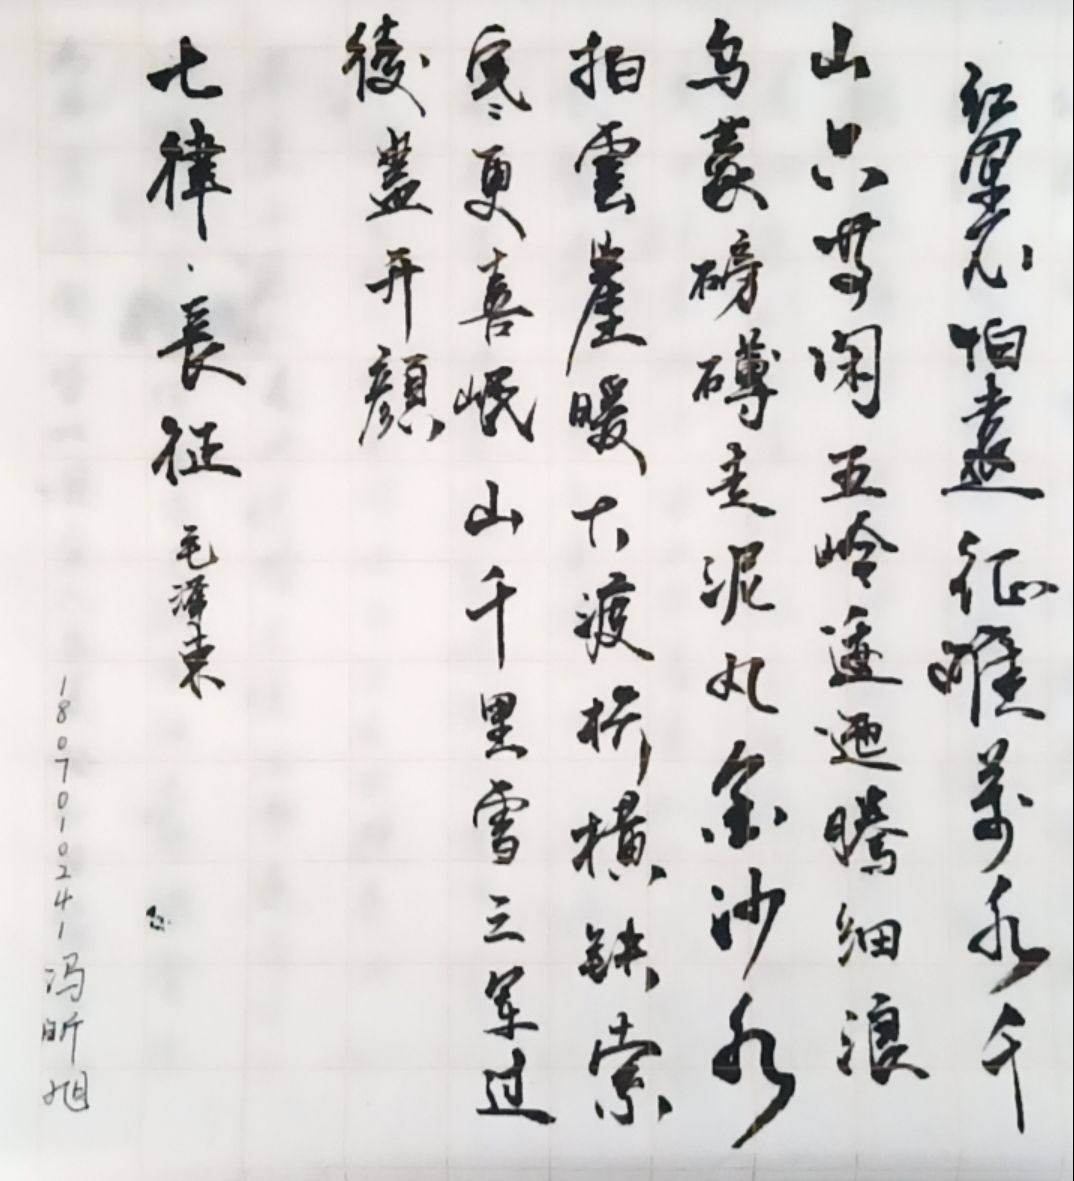 红軍不怕遠征難萬水千
山只等闲五岭逶迤腾细浪
乌蒙磅礴走泥丸金沙水
拍雲崖暖大渡桥横鉄索
寒更喜岷山千里雪三军过
後盡开顔
七律·長征 毛泽東
1807010241冯昕旭